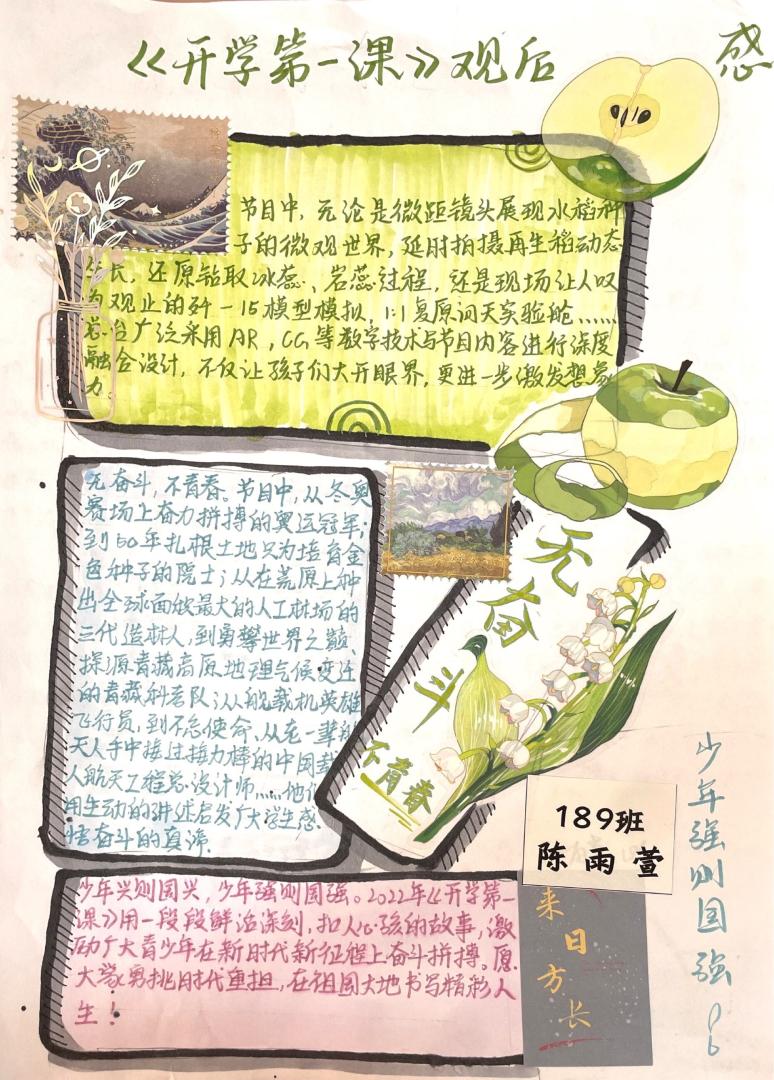 《开学第一课》观后感
节目中，无论是微距镜头展现水稻种
子的微观世界，延时拍摄再生稻动态
生长，还原钻取冰蕊、岩蕊过程，还是现场让人叹
为观止的歼-15模型模拟，1:1复原问天实验舱……
总台广泛采用AR，CG等数字技术与节目内容进行深度
融合设计，不仅让孩子们大开眼界，更进一步激发想象
力。
无奋斗，不青春。节目中，从冬奥
赛场上奋力拼搏的奥运冠军；
到50年扎根土地只为培育金
色种子的院士；从在荒原上种
出全球面积最大的人工林场的
三代造林人，到勇攀世界之巅
探源青藏高原地理气候变迁
的青藏科考队；从舰载机英雄
飞行员，到不忘使命，从老一辈航
天人手中接过接力棒的中国载
人航天工程总设计师……他们
用生动的讲述启发广大学生感
悟奋斗的真谛。
无奋斗
不青春
189班
陈雨萱
少年兴则国兴，少年强则国强。2022年《开学第一
课》用一段段鲜活深刻，扣人心弦的故事，激
励广大青少年在新时代新征程上奋斗拼搏。愿
大家勇挑时代重担，在祖国大地书写精彩人
生！
来日方长
少年强则国强！